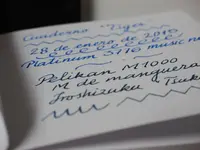 Cuaderno "Tiger"
28 de enero de 2016
Platinum 3776 music
Pelikan M1000
M de manguera
Iroshizuku Tsuk